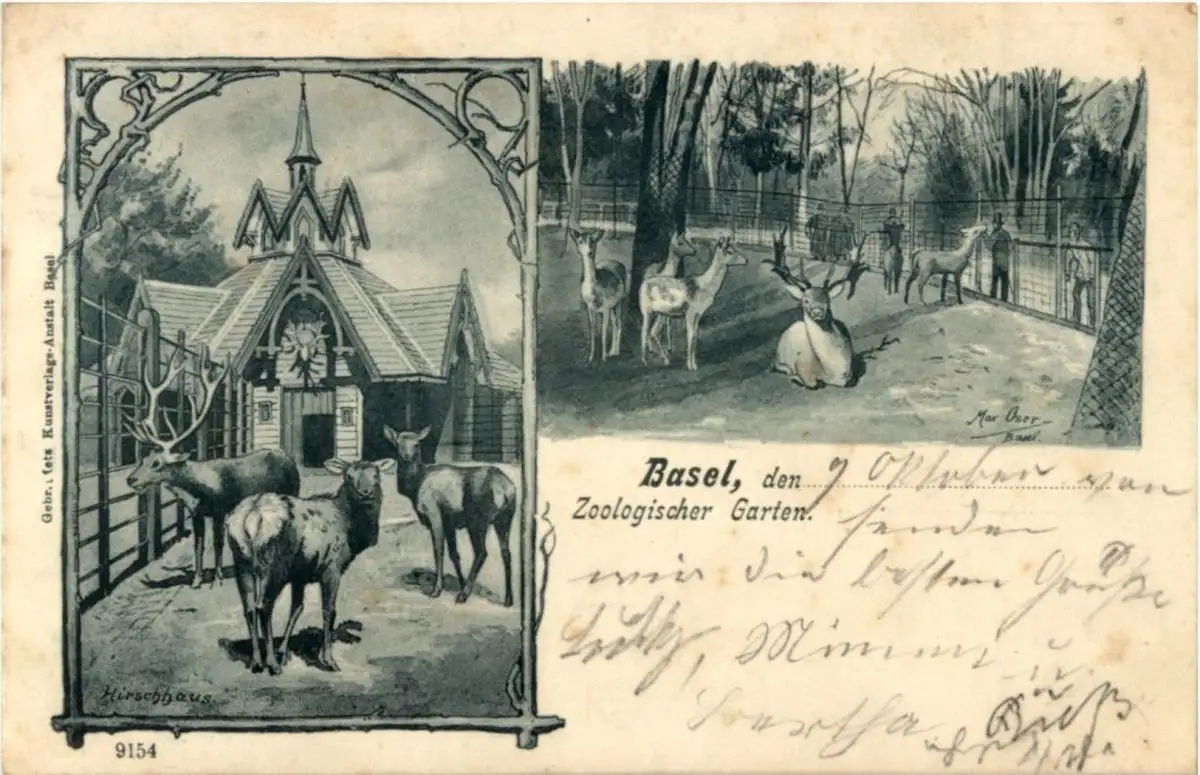 Gebr. Metz Kunstverlags-Anstalt Basel
Hirschhaus.
9154
Max Oser
Basel
Basel, den 9 Oktober von
Zoologischer Garten.
senden
wir die besten Grüße
Mimmi u
Bertha